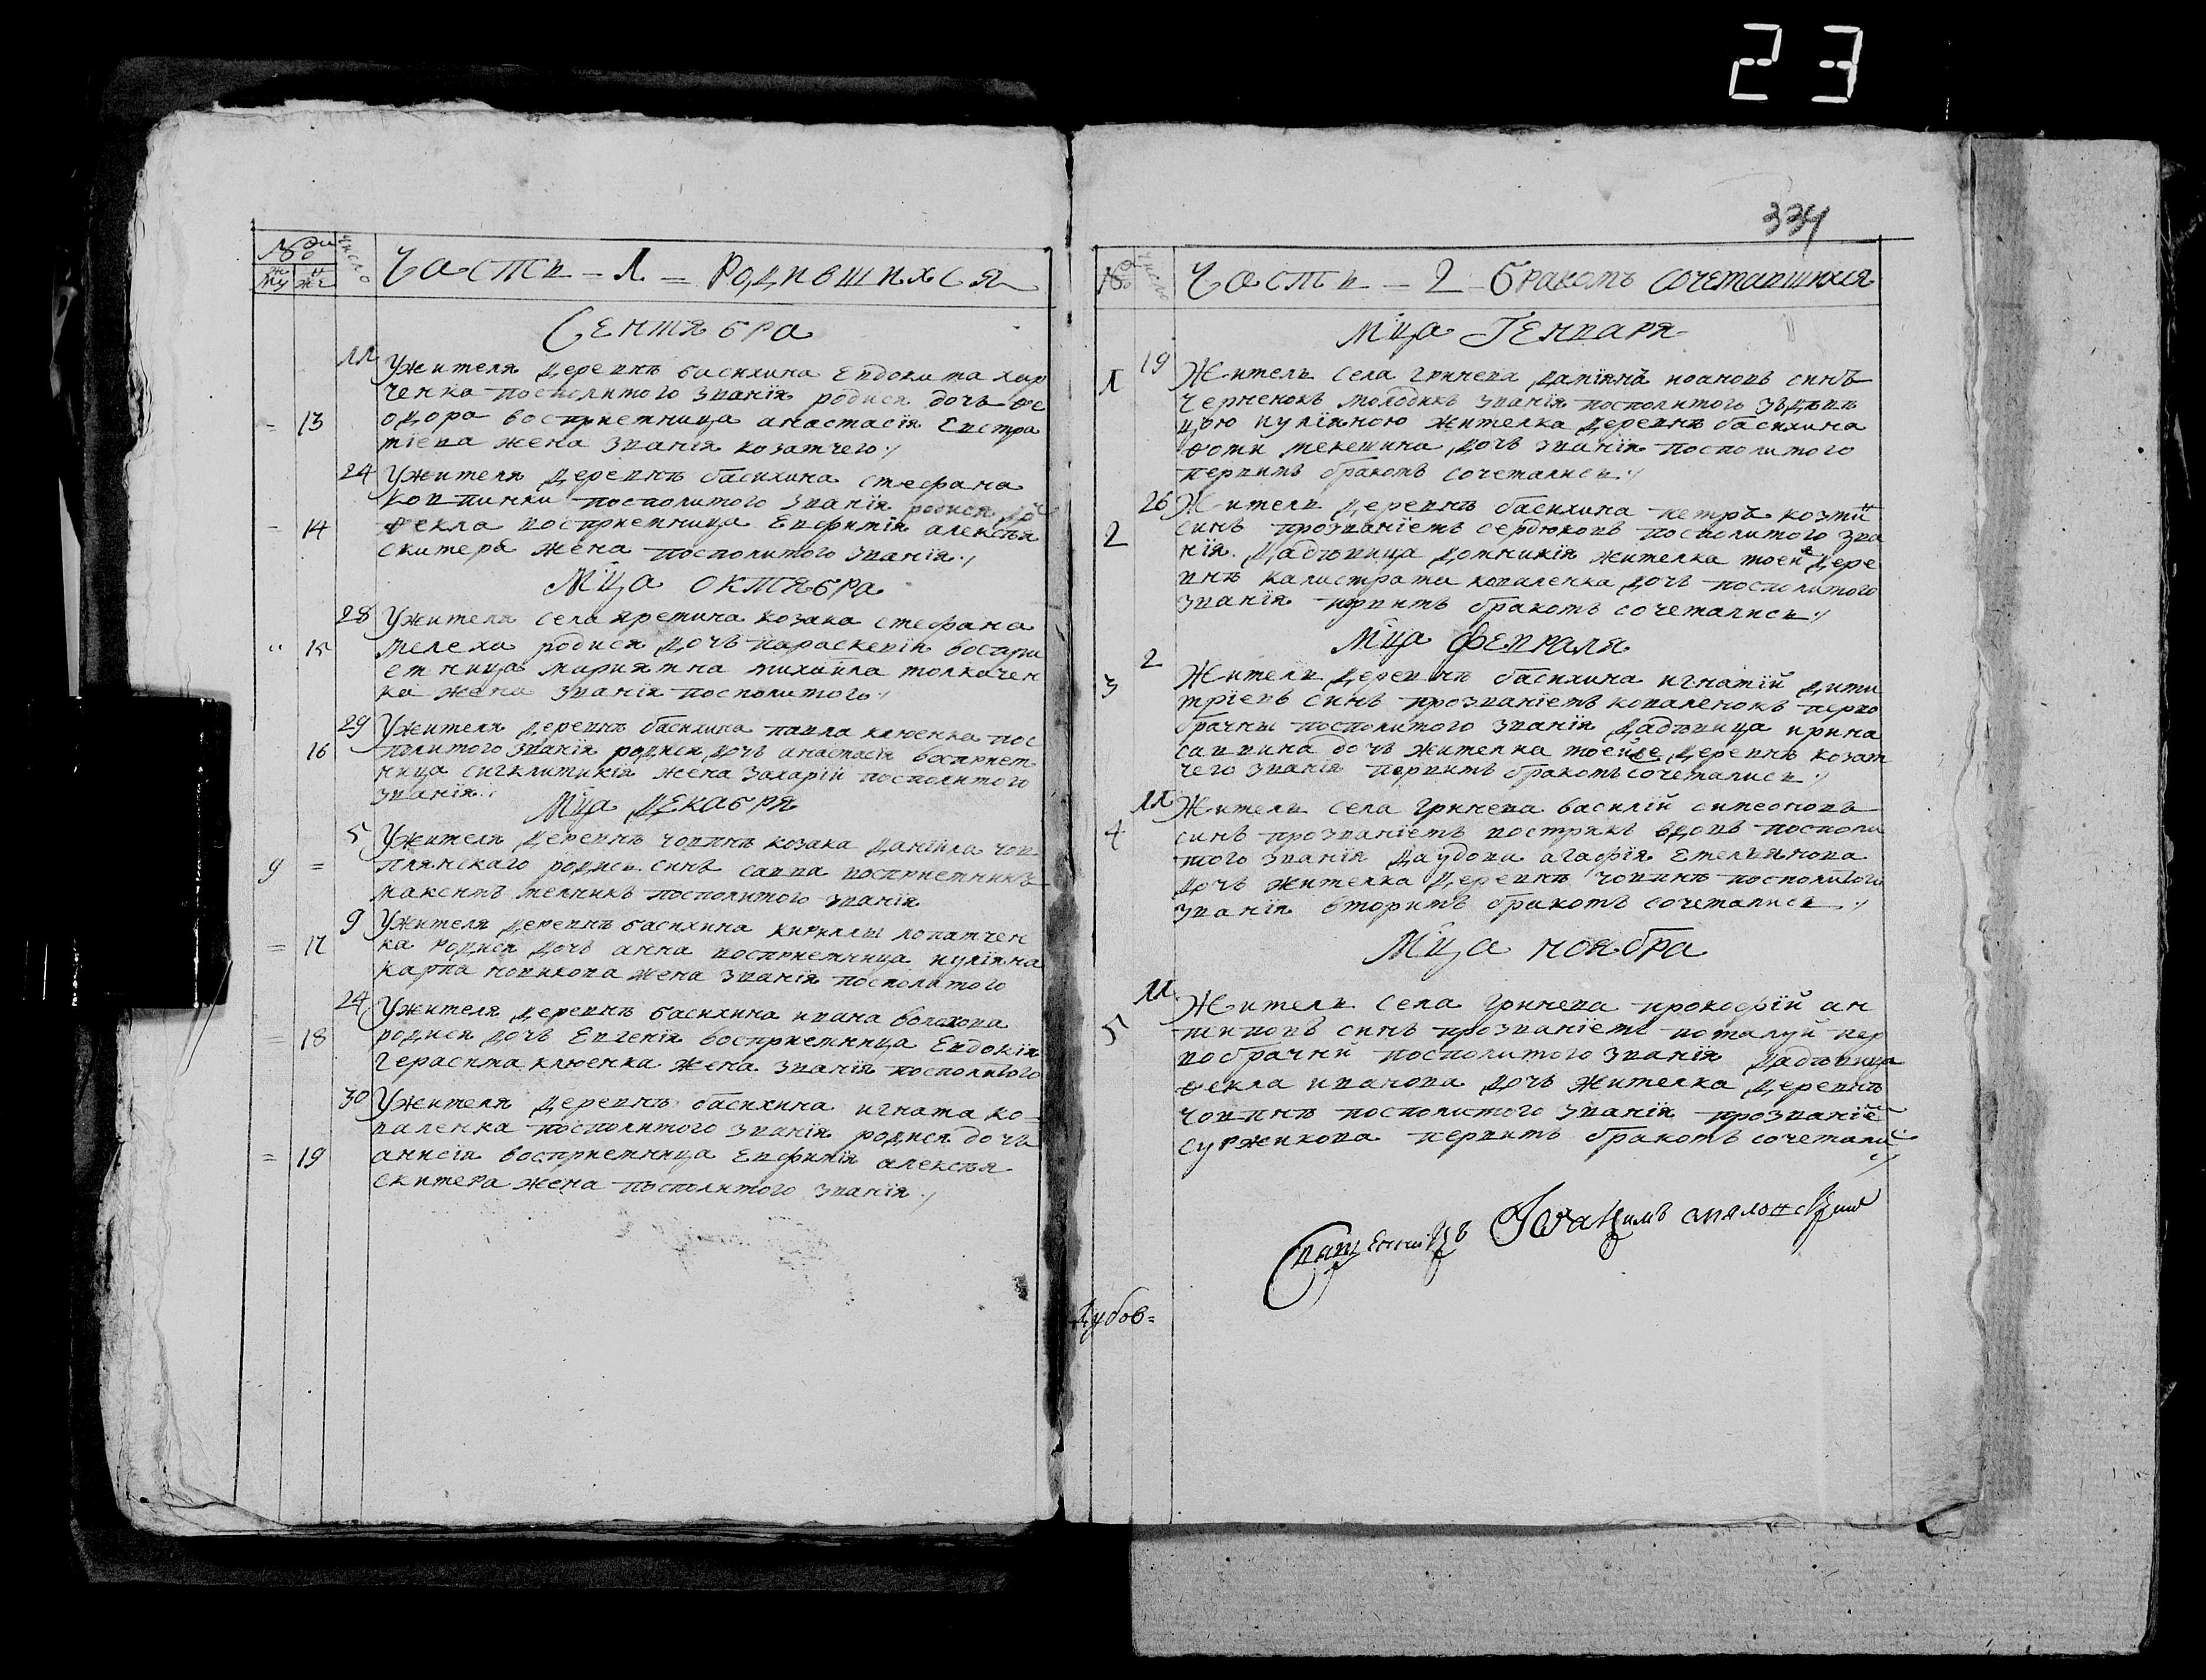 23
№ до
му же
число
Часть - 1 = Родившихся
Сентября
11 Ужителя деревнѣ басихина Евдокима хар
ченка посполитого званїя родися дочъ ѳе
= 13 одора восприемница анастасїя Евстра
тїева жена званїя козатчего
24 Ужителя деревнѣ басихина стефана
посполитого званїя родися дочъ
= 14 ѳекла восприемница Евфимїя алексѣя
скитера жена посполитого званїя
Мца октября
28 Ужителя села яремина козака стефана
" 15 мелеха родися дочъ параскевїя воспри
емница мариямна михаила толкачен
ка жена званїя посполитого
29 Ужителя деревнѣ басихина павла клюенка пос
16 политого званїя родися дочъ анастасїя восприем
ница сигклитикїя жена захарїй посполитого
званїя
Мца Декабря
5 Ужителя деревнѣ човпнѣ козака данїила чов
9 = пянскаго родися синъ савва восприемникъ
максимъ мелникъ посполитого званїя
9 Ужителя деревнѣ басихина кириллы лопатчен
= 17 ка родися дочъ анна восприемница иулїяна
карпа новикова жена званїя посполитого
24 Ужителя деревнѣ басихина ивана волохова
= 18 родися дочъ Евгенїя восприемница Евдокїя
герасима клюенка жена званїя посполитого
30 Ужителя деревнѣ басихина игната ко=
валенка посполитого званїя родися дочъ
= 19 анисїя восприемница Евфимїя алексѣя
скитера жена посполитого званїя
334
число
Часть - 2 - бракомъ сочетавшихся
Мца Генваря
19 Житель села гринева дамїянъ иоановъ синъ
1 черненокъ молодикъ званїя посполитого здѣви
цою иулїяною жителка деревнѣ басихина
дочъ званїя посполитого
первимъ бракомъ сочетались
26 Житель деревнѣ басихина петръ козминъ
2 синъ прозванїемъ сердюковъ посполитого зва
нїя. Дадѣвица домникїя жителка тоей дере
внѣ калистрата коваленка дочъ посполитого
званїя первимъ бракомъ сочетались
Мца февраля
2 Житель деревнѣ басихина игнатїй дими
3 трїевъ синъ прозванїемъ коваленокъ перво
брачны посполитого званїя Дадѣвица ирина
саввина дочъ жителка тоейже деревнѣ козат
чего званїя первимъ бракомъ сочетались
11 Житель села гринева василїй симеоновъ
4 синъ прозванїемъ вострякъ вдовъ посполи
того званїя Даудова агафїя Емельянова
дочъ жителка деревнѣ човпнѣ посполитого
званїя вторимъ бракомъ сочетались
Мца ноября
11 Житель села гринева прокофїй ан
5 типовъ синъ прозванїемъ потапуй пер
вобрачній посполитого званїя Дадѣвица
ѳекла иванова дочъ жителка деревнѣ
човпнѣ посполитого званїя прозванїе
суржикова первимъ бракомъ сочетались
Священникъ Іоакимъ смялонский
Дубов=